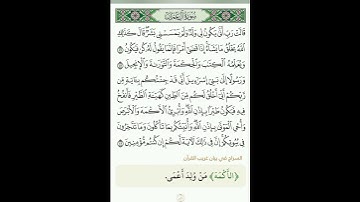 سُورَةُ آلِ عِمۡرَانَ
قَالَتۡ رَبِّ أَنَّىٰ يَكُونُ لِي وَلَدٞ وَلَمۡ يَمۡسَسۡنِي بَشَرٞۖ قَالَ كَذَٰلِكِ
ٱللَّهُ يَخۡلُقُ مَا يَشَآءُۚ إِذَا قَضَىٰٓ أَمۡرٗا فَإِنَّمَا يَقُولُ لَهُۥ كُن فَيَكُونُ ٤٧
وَيُعَلِّمُهُ ٱلۡكِتَٰبَ وَٱلۡحِكۡمَةَ وَٱلتَّوۡرَىٰةَ وَٱلۡإِنجِيلَ ٤٨
وَرَسُولًا إِلَىٰ بَنِيٓ إِسۡرَٰٓءِيلَ أَنِّي قَدۡ جِئۡتُكُم بِـَٔايَةٖ مِّن
رَّبِّكُمۡ أَنِّيٓ أَخۡلُقُ لَكُم مِّنَ ٱلطِّينِ كَهَيۡـَٔةِ ٱلطَّيۡرِ فَأَنفُخُ
فِيهِ فَيَكُونُ طَيۡرَۢا بِإِذۡنِ ٱللَّهِۖ وَأُبۡرِئُ ٱلۡأَكۡمَهَ وَٱلۡأَبۡرَصَ
وَأُحۡيِ ٱلۡمَوۡتَىٰ بِإِذۡنِ ٱللَّهِۖ وَأُنَبِّئُكُم بِمَا تَأۡكُلُونَ وَمَا تَدَّخِرُونَ
فِي بُيُوتِكُمۡۚ إِنَّ فِي ذَٰلِكَ لَأٓيَةٗ لَّكُمۡ إِن كُنتُم مُّؤۡمِنِينَ ٤٩
السراج في بيان غريب القرآن
﴿الأَكْمَهَ﴾ مَنْ وُلِدَ أَعْمَى.